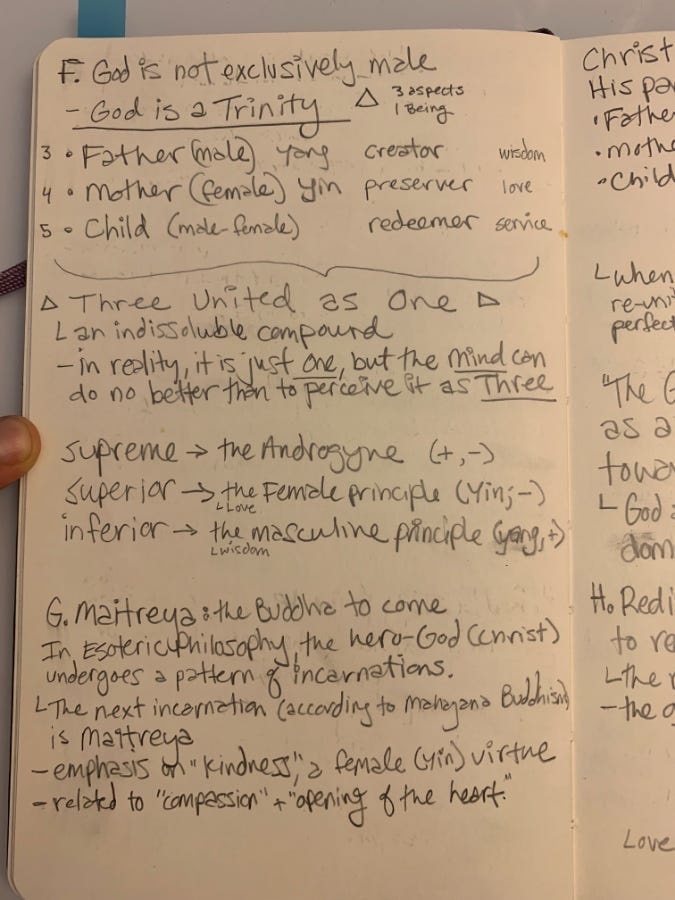 F. God is not exclusively male
- God is a Trinity △ 3 aspects
1 Being
3 • Father (male) yang creator wisdom
4 • Mother (female) yin preserver love
5 • Child (male-female) redeemer service
△ Three United as One △
L an indissoluble compound
- in reality, it is just one, but the mind can
do no better than to perceive it as Three
supreme → the Androgyne (+,-)
superior → the Female principle (Yin; -)
L Love
inferior → the masculine principle (yang, +)
L wisdom
G. Maitreya: the Buddha to come
In Esoteric Philosophy, the hero-God (Christ)
undergoes a pattern of incarnations.
L The next incarnation (according to Mahayana Buddhism)
is Maitreya
- emphasis on "kindness," a female (yin) virtue
- related to "compassion" + "opening of the heart."
Christ
His pa
• Father
• mothe
• Child
L when
re-uni
perfect
"The G
as a
towa
L God a
dom
H. Redi
to re
L the r
- the g
Love